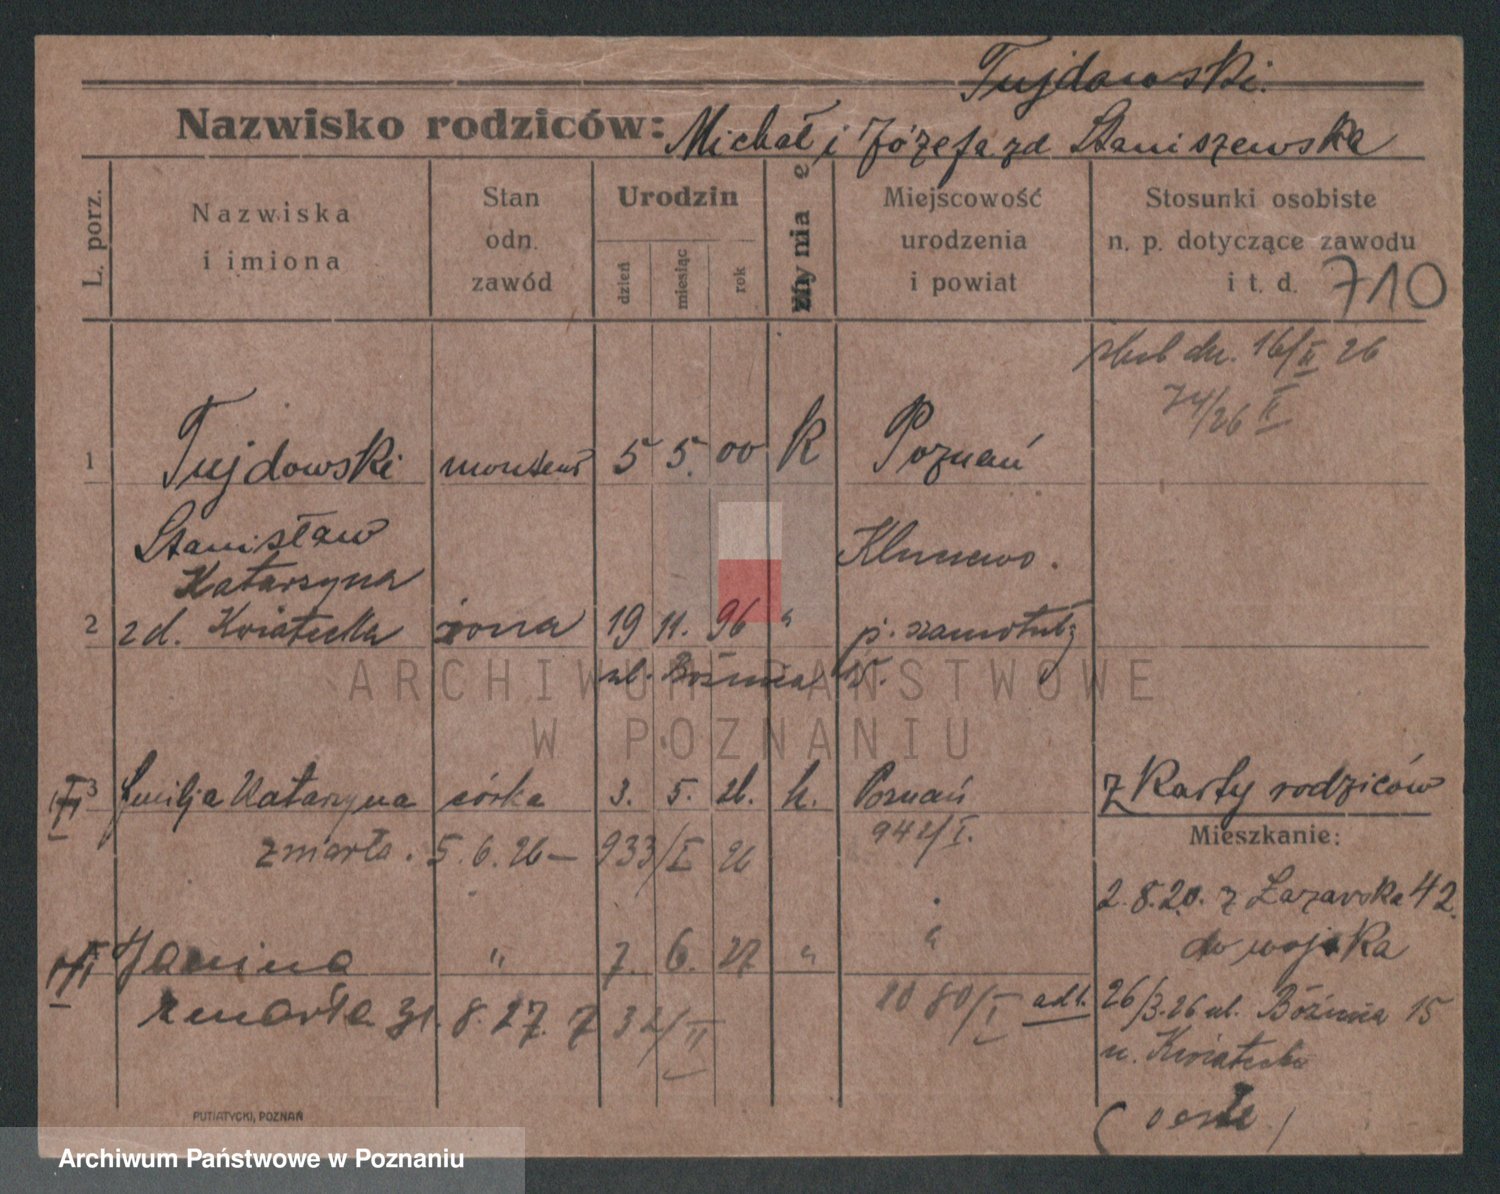 Tujdowski.
Nazwisko rodziców: Michał i Józefa zd Staniszewska
L. porz.
Nazwiska
i imiona
Stan
odn.
zawód
Urodzin
dzień
miesiąc
rok
Miejscowość
urodzenia
i powiat
Stosunki osobiste
n. p. dotyczące zawodu
i t. d. 710
dn. 16/II 26
74/26 II
1 Tujdowski monter 5 5. 00 k Poznań
Stanisław
Katarzyna Klunewo.
2 zd. Kwiatecka żona 19 11. 96 " p. szamotuły
ul. Bóźnicza 15.
3 Emilja Katarzyna córka 3. 5. 26. k. Poznań z Karty rodziców
zmarła. 5.6.26 – 933/I 26 942/I.
Mieszkanie:
2.8.20. z Łazarska 42.
do wojska
Janina " 7. 6. 27 " "
zmarła 31.8.27. 732/II 1080/I adl.
26/3.26 ul. Bóźnicza 15
u. Kwiatecka
PUTIATYCKI, POZNAŃ
ARCHIWUM PAŃSTWOWE
W POZNANIU
Archiwum Państwowe w Poznaniu